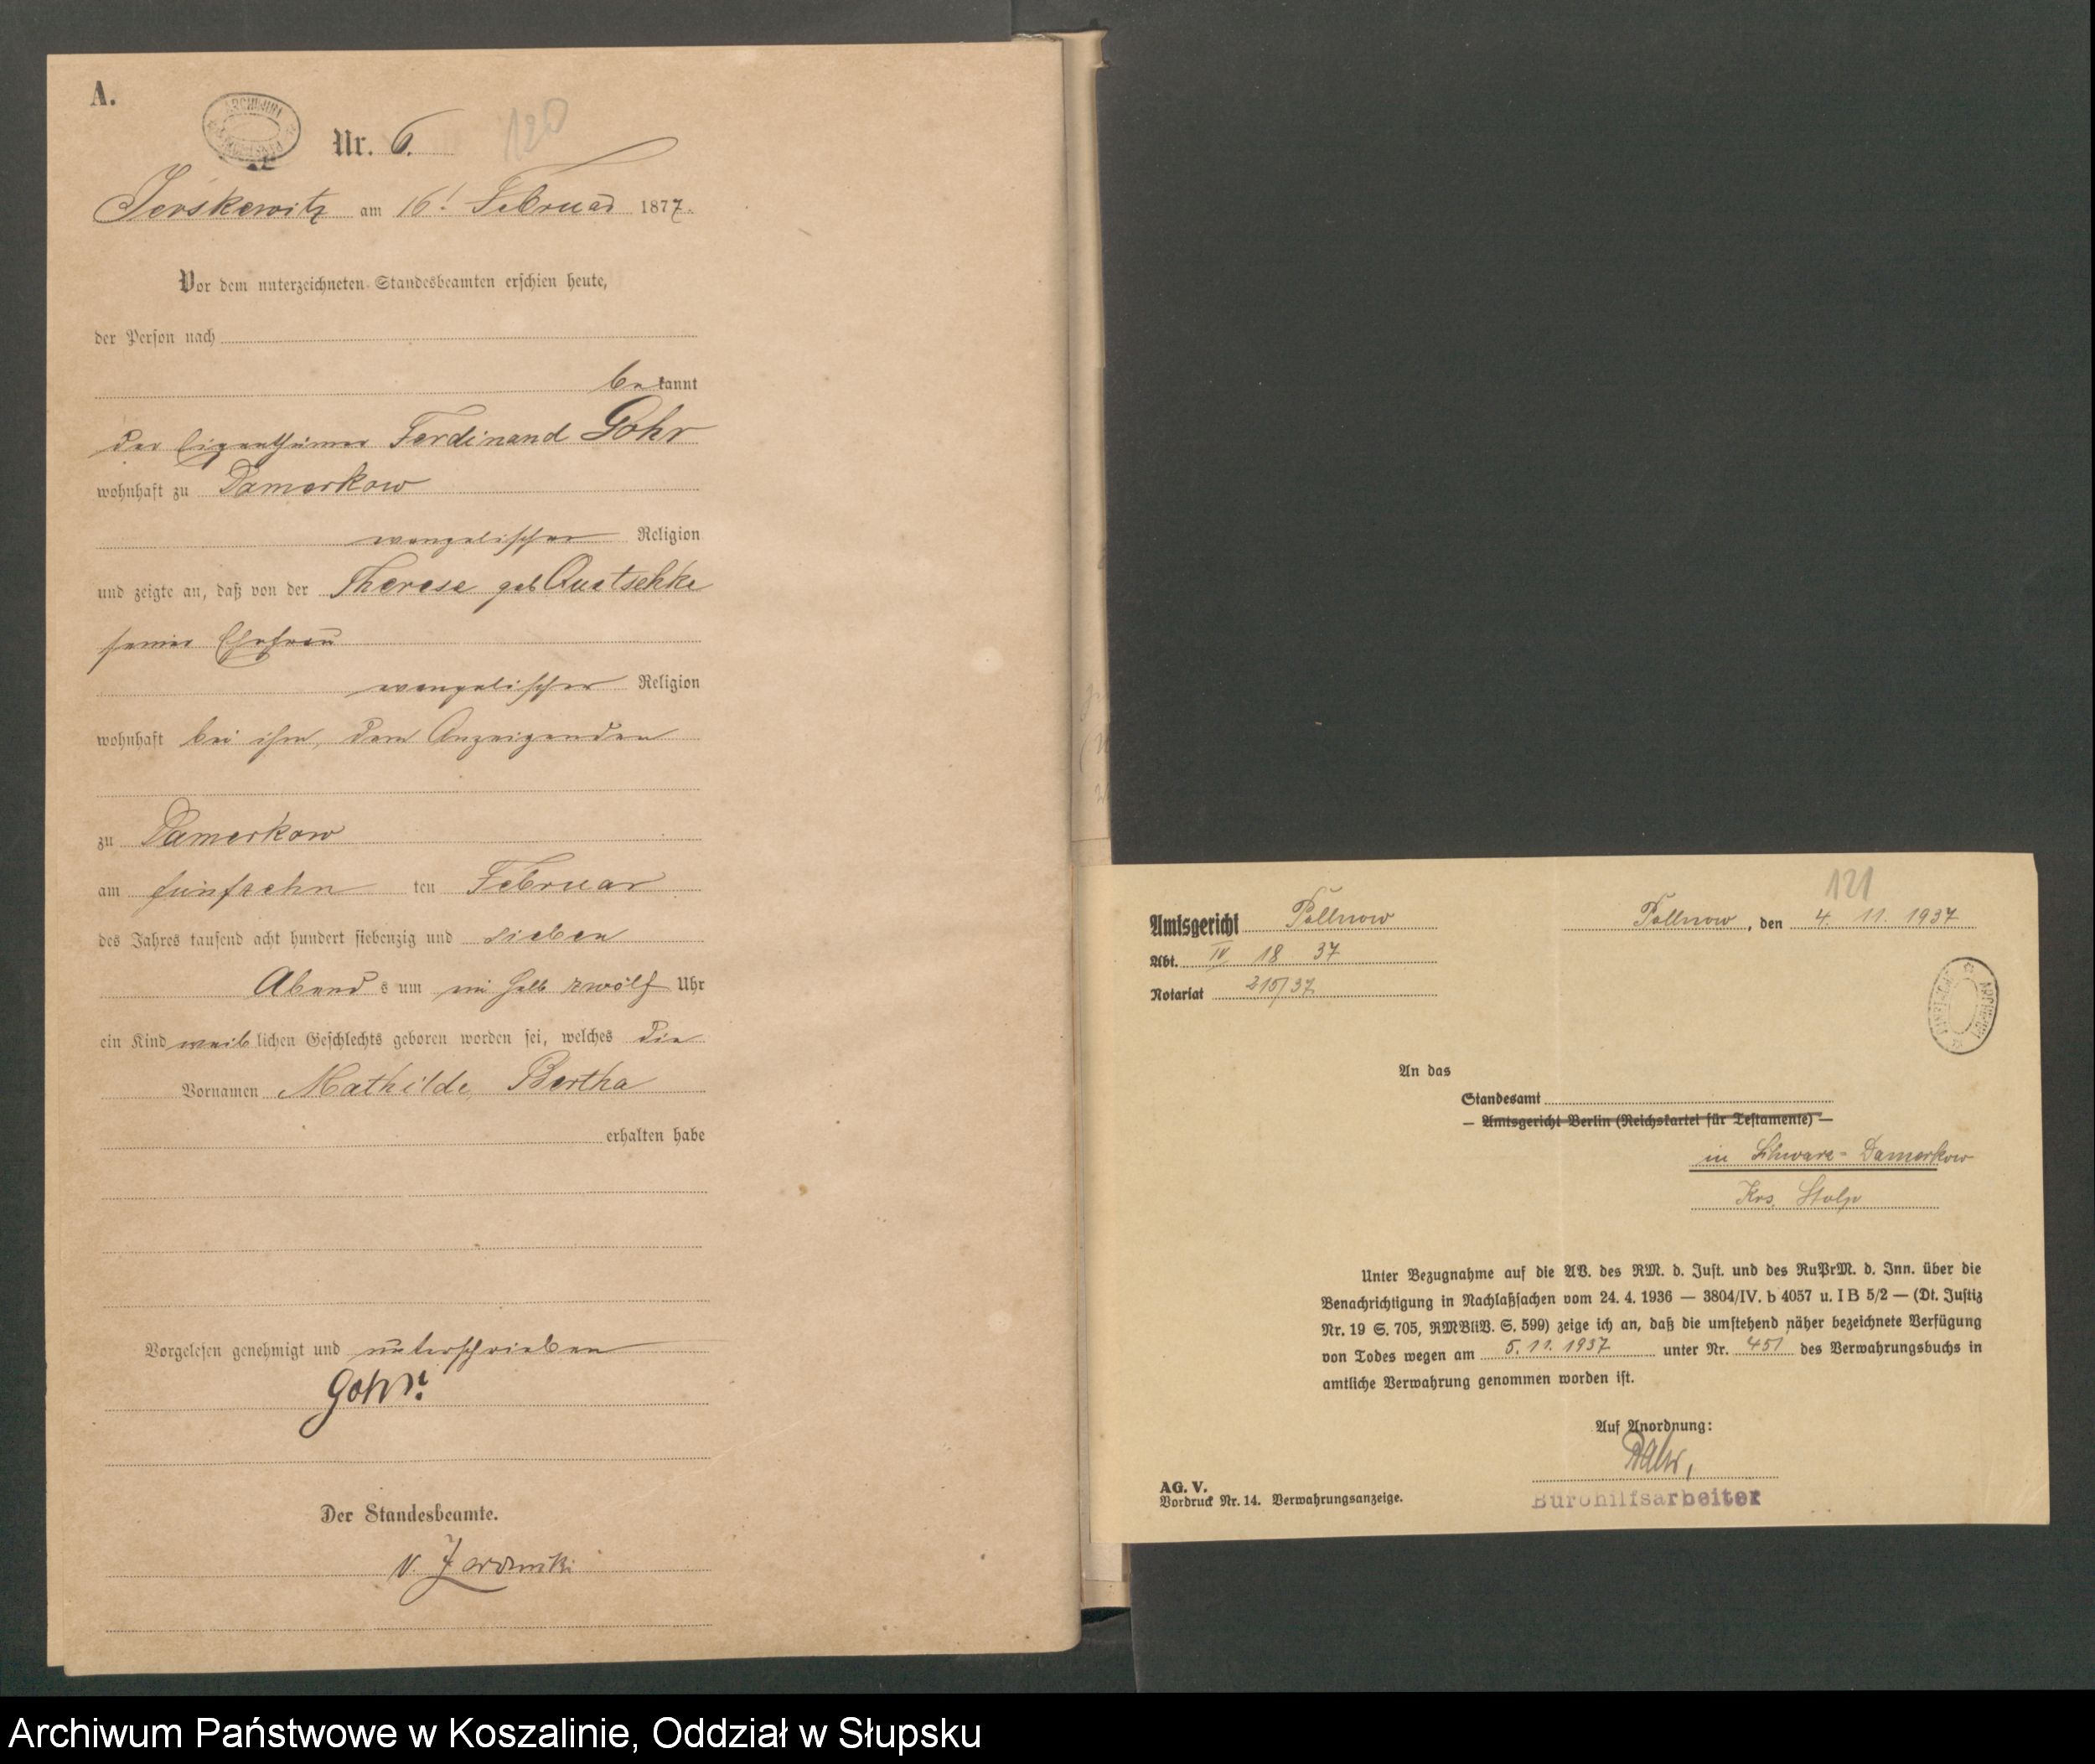 A.
Nr. 6.
120
Jerskewitz am 16! Februar 1877.
Vor dem unterzeichneten Standesbeamten erschien heute,
der Person nach
be kannt
der Eigenthümer Ferdinand Gohr
wohnhaft zu Damerkow
evangelischer Religion
und zeigte an, daß von der Therese geb Quetschke
seiner Ehefrau
evangelischer Religion
wohnhaft bei ihm, dem Anzeigenden
zu Damerkow
am fünfzehn ten Februar
des Jahres tausend acht hundert siebenzig und sieben
Abend s um halb zwölf Uhr
ein Kind weib lichen Geschlechts geboren worden sei, welches die
Vornamen Mathilde, Bertha
erhalten habe
Vorgelesen genehmigt und unterschrieben
Gohr
Der Standesbeamte.
v.
121
Amtsgericht Pollnow
Pollnow, den 4. 11. 1937
Abt. IV 18 37
Notariat 215/37
An das
Standesamt
— Amtsgericht Berlin (Reichskartei für Testamente) —
in Schwarz-Damerkow
Krs. Stolp
Unter Bezugnahme auf die AV. des RM. d. Just. und des RuPrM. d. Inn. über die
Benachrichtigung in Nachlaßsachen vom 24. 4. 1936 — 3804/IV. b 4057 u. I B 5/2 — (Dt. Justiz
Nr. 19 S. 705, RMBliV. S. 599) zeige ich an, daß die umstehend näher bezeichnete Verfügung
von Todes wegen am 5. 11. 1937 unter Nr. 451 des Verwahrungsbuchs in
amtliche Verwahrung genommen worden ist.
Auf Anordnung:
Bürohilfsarbeiter
AG. V.
Vordruck Nr. 14. Verwahrungsanzeige.
Archiwum Państwowe w Koszalinie, Oddział w Słupsku